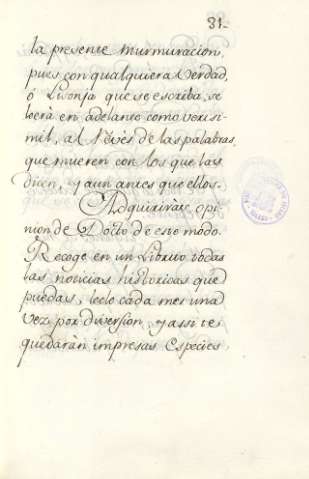 81.
la presente murmuracion,
pues con qualquiera verdad,
ó Lisonja que se escriba, se
leerá en adelante como verisi-
mil, al reves de las palabras,
que mueren con los que las
dicen, y aun antes que ellos.
Adquirirás opi-
nion de Docto de este modo.
Recoge en un Librito todas
las noticias historicas que
puedas, leelo cada mes una
vez por diversion, y assi te
quedarán impresas Especies